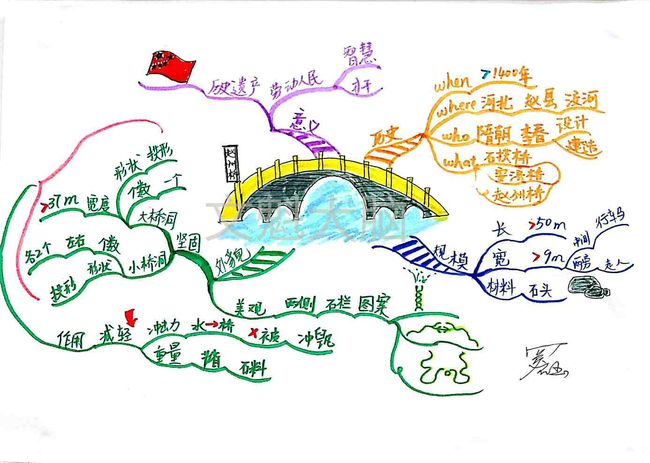 历史遗产 劳动人民
智慧
才干
意义
赵州桥
历史
when >1400年
where 河北 赵县 洨河
who 隋朝 李春 设计
建造
what 石拱桥
安济桥
赵州桥
规模
长 >50m
宽 >9m
中间 行车马
两旁 走人
材料 石头
外貌
坚固
大桥洞
形状 拱形
个数 一个
>37m 宽度
小桥洞
各2个 左右 个数
拱形 形状
作用 减轻
冲击力 水→桥 ×被 冲毁
重量 节省 石料
美观 两侧 石栏 图案